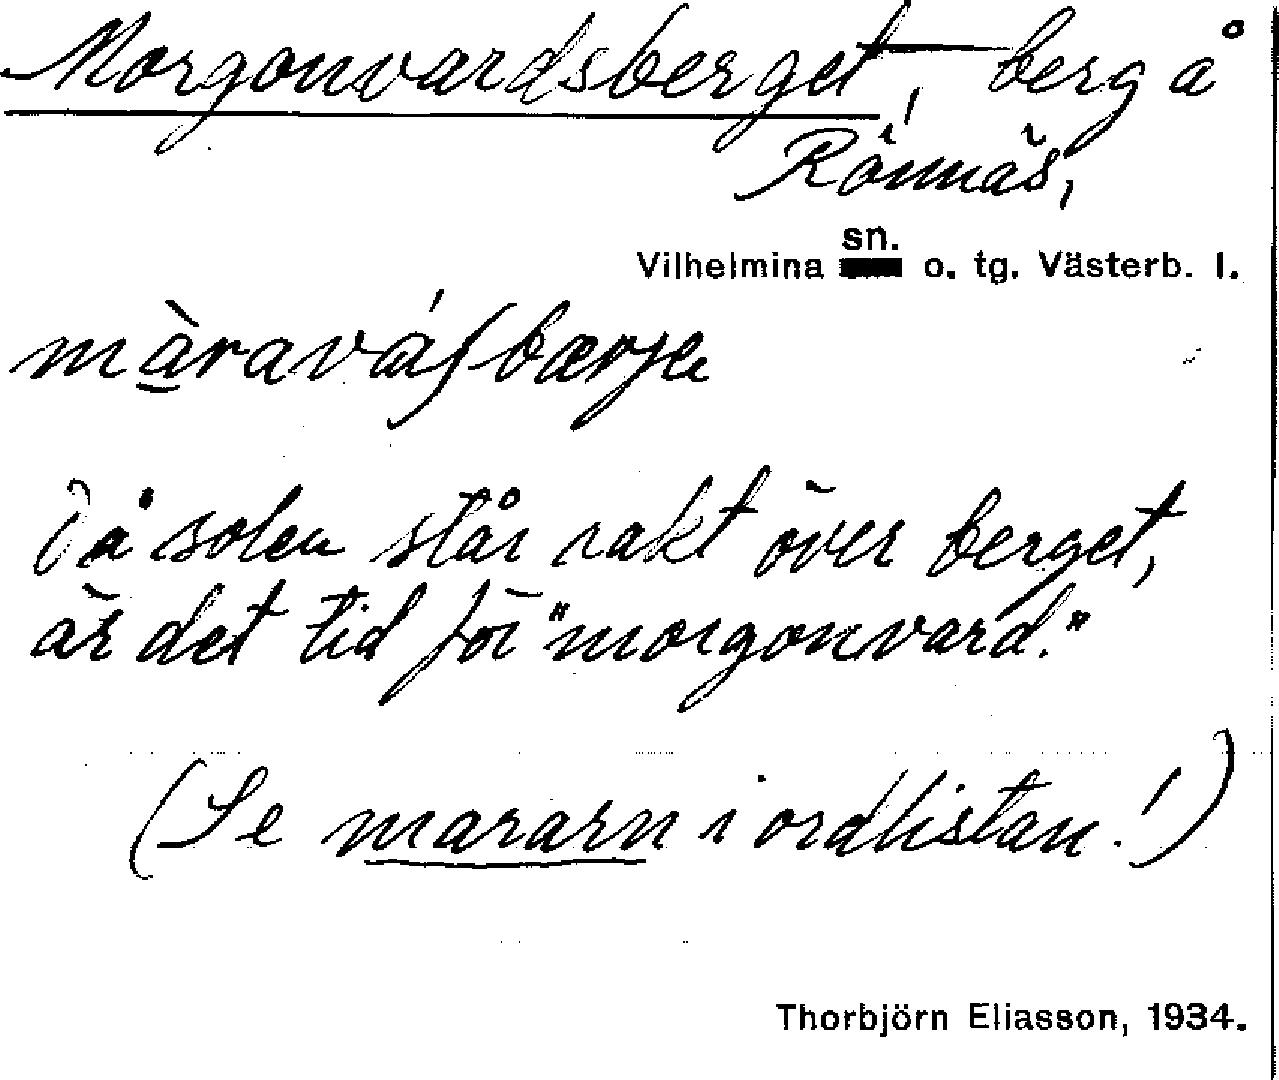 Morgonvardsberget, berg å
Rönnäs,
sn.
Vilhelmina o. tg. Västerb. l.
Då solen står rakt över berget,
är det tid för "morgonvard."
(Se mararn i ordlistan!)
Thorbjörn Eliasson, 1934.